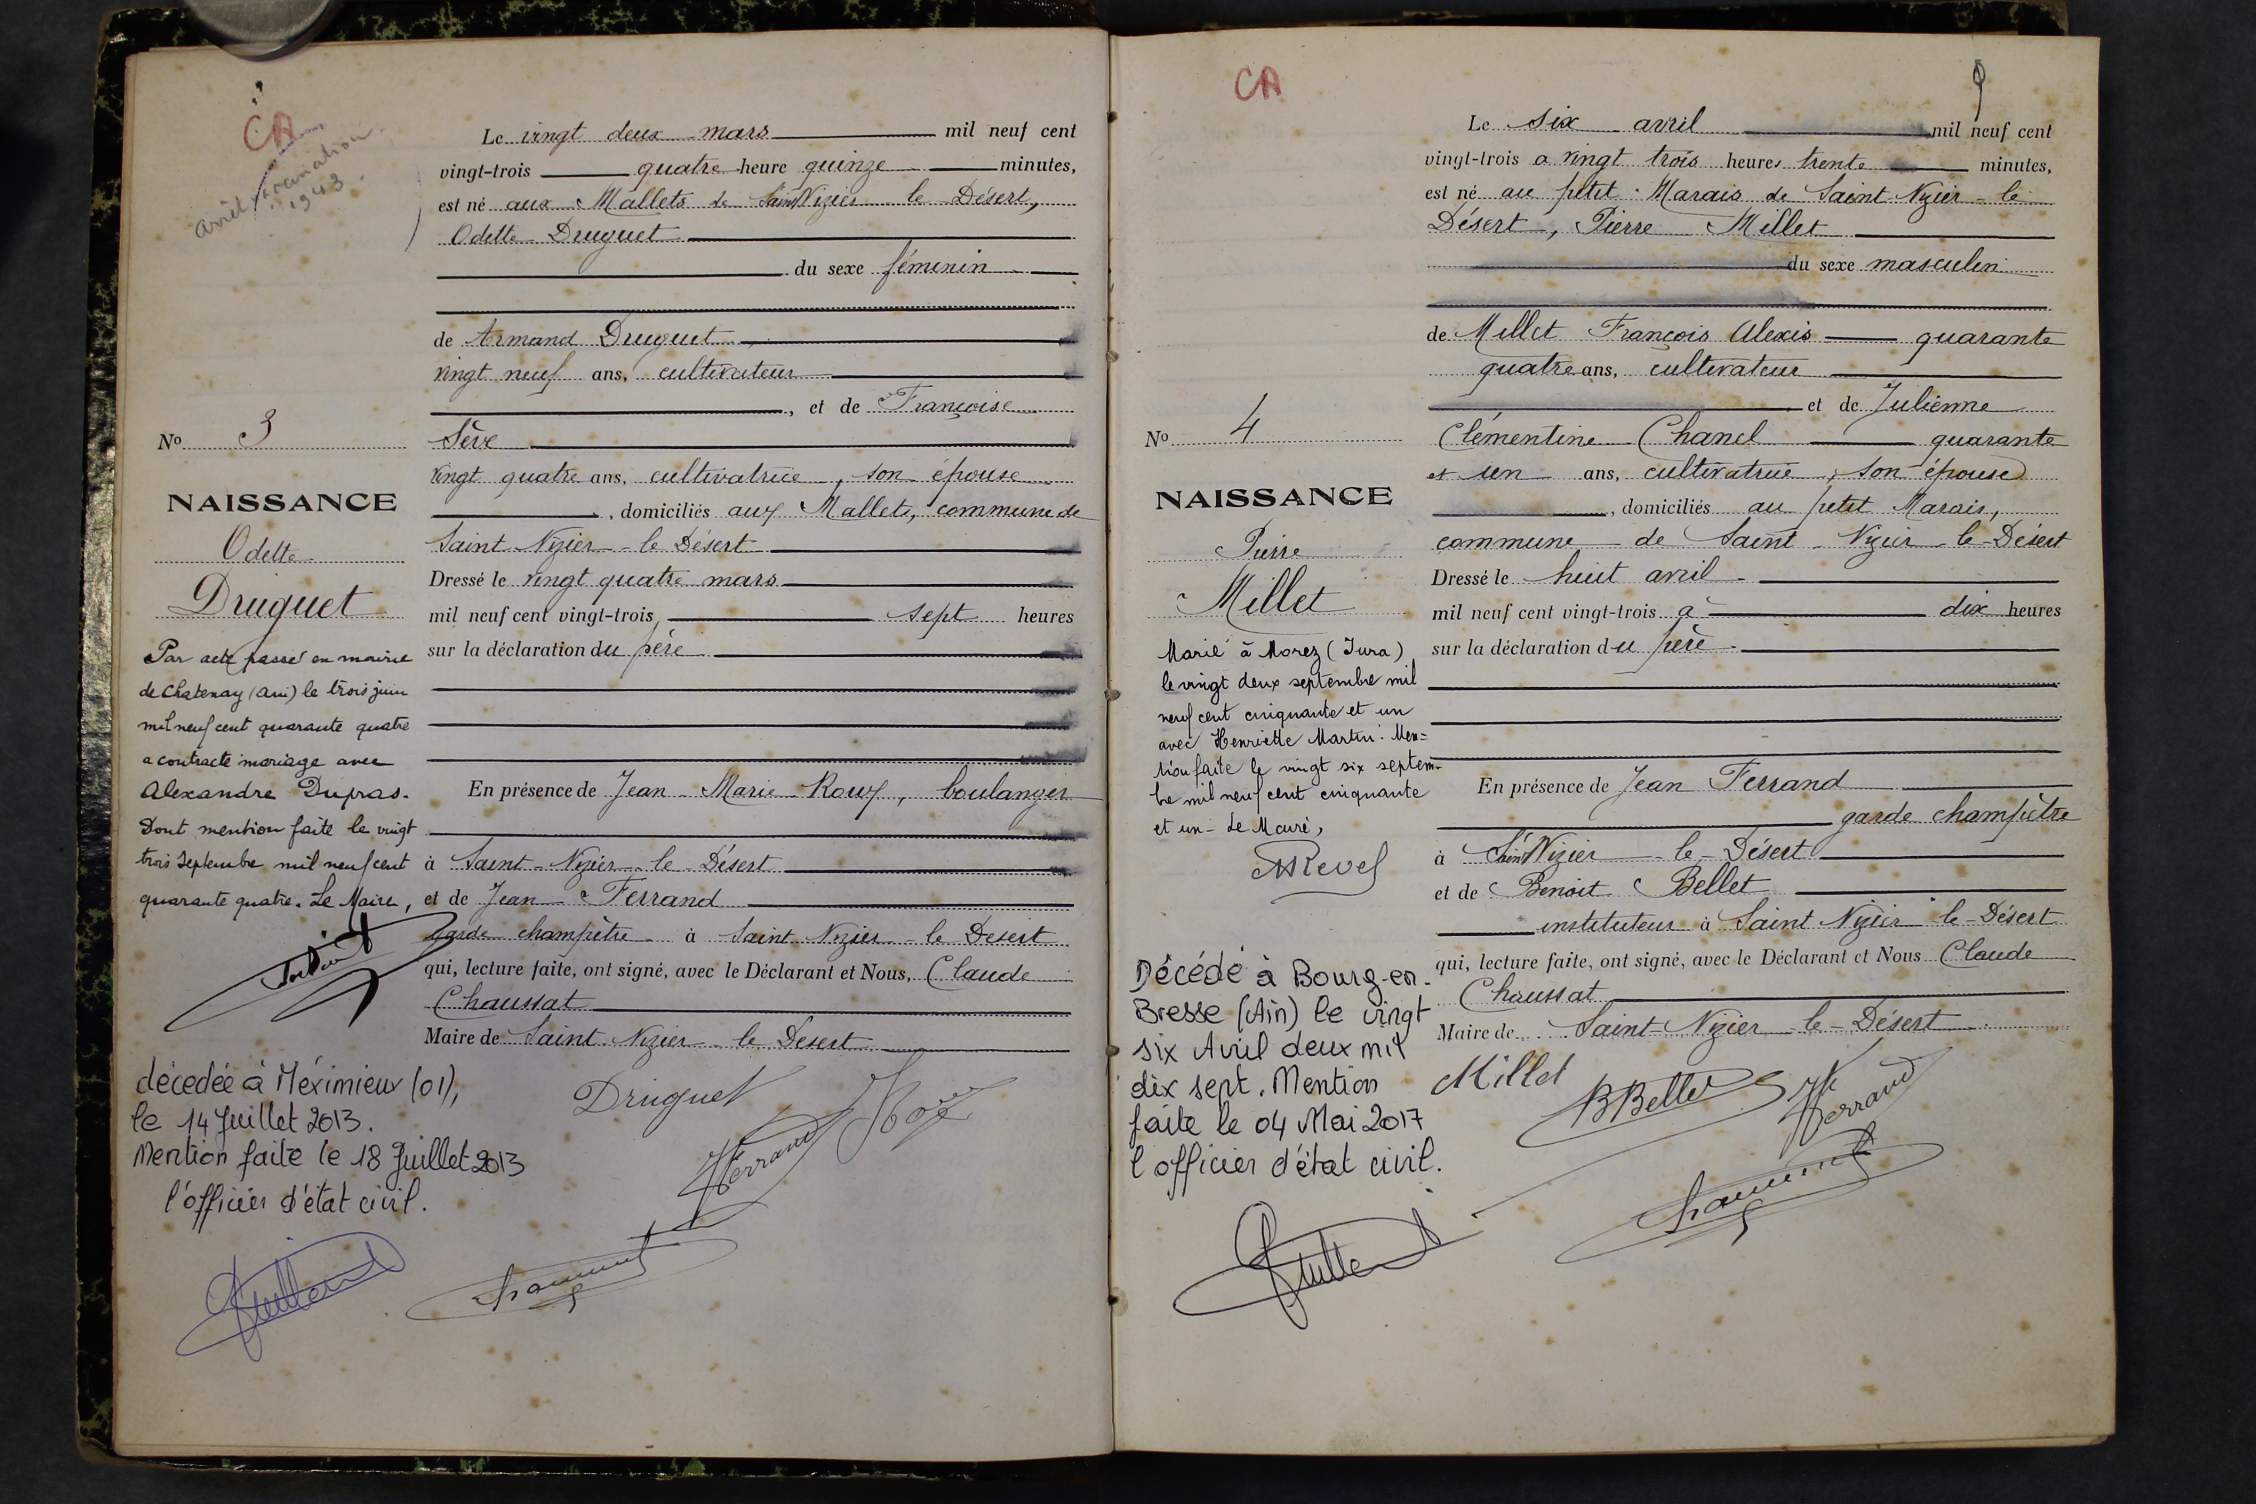 CA
arrêt
1943
Le vingt deux mars mil neuf cent
vingt-trois quatre heure quinze minutes,
est né aux Mallets de Saint Nizier le Désert,
Odette Druguet
du sexe féminin
de Armand Druguet
vingt neuf ans, cultivateur
, et de Françoise
Sève
vingt quatre ans, cultivatrice, son épouse
, domiciliés aux Mallets, commune de
Saint Nizier-le Désert
Dressé le vingt quatre mars
mil neuf cent vingt-trois sept heures
sur la déclaration du père
En présence de Jean-Marie Roux, boulanger
à Saint-Nizier-le Désert
et de Jean Ferrand
garde champêtre à Saint Nizier-le Desert
qui, lecture faite, ont signé, avec le Déclarant et Nous, Claude
Chaussat
Maire de Saint Nizier le Desert
Druguet
Ferrand
No 3
NAISSANCE
Odette
Druguet
Par acte passé en mairie
de Chatenay (Ain) le trois juin
mil neuf cent quarante quatre
a contracté mariage avec
Alexandre Dupras.
Dont mention faite le vingt
trois septembre mil neuf cent
quarante quatre. Le Maire,
décedée à Méximieux (01),
le 14 Juillet 2013.
Mention faite le 18 Juillet 2013
l'officier d'état civil.
CA
9
Le six avril mil neuf cent
vingt-trois a vingt trois heures trente minutes,
est né au petit Marais de Saint Nizier-le
Désert, Pierre Millet
du sexe masculin
de Millet François Alexis quarante
quatre ans, cultivateur
et de Julienne
Clémentine Chanel quarante
et un ans, cultivatrice, son épouse
, domiciliés au petit Marais,
commune de Saint-Nizier-le-Désert
Dressé le huit avril
mil neuf cent vingt-trois à dix heures
sur la déclaration du père
En présence de Jean Ferrand
garde champêtre
à Saint Nizier-le-Désert
et de Benoit Bellet
instituteur à Saint Nizier le-Désert
qui, lecture faite, ont signé, avec le Déclarant et Nous Claude
Chaussat
Maire de Saint-Nizier-le-Désert
Millet
BBellet
Ferrand
No 4
NAISSANCE
Pierre
Millet
Marié à Morez (Jura)
le vingt deux septembre mil
neuf cent cinquante et un
avec Henriette Martin. Men=
tion faite le vingt six septem-
bre mil neuf cent cinquante
et un - Le Maire,
Revel
Décédé à Bourg-en-
Bresse (Ain) le vingt
six Avril deux mil
dix sept. Mention
faite le 04 Mai 2017
l'officier d'état civil.